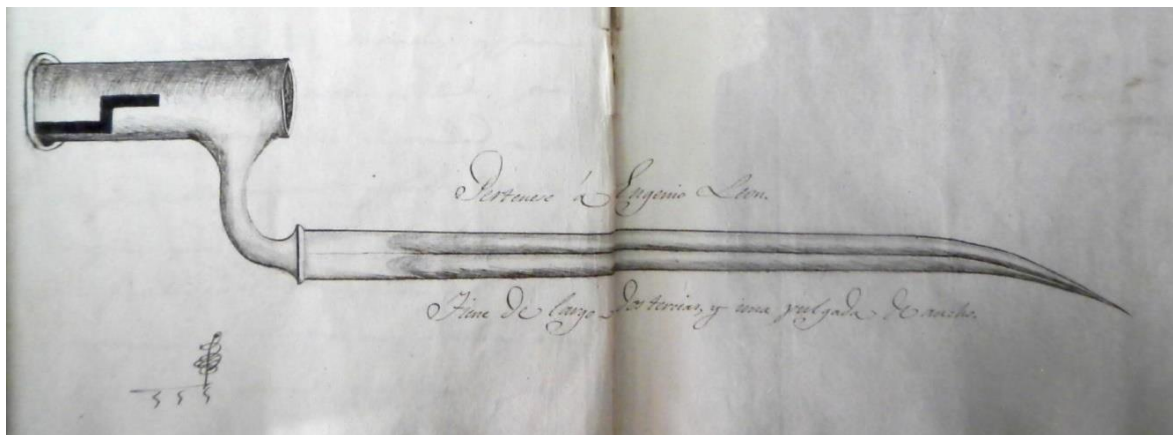 Pertenese á Eugenio Leon.
Tiene de largo dos tercias, y una pulgada de ancho.